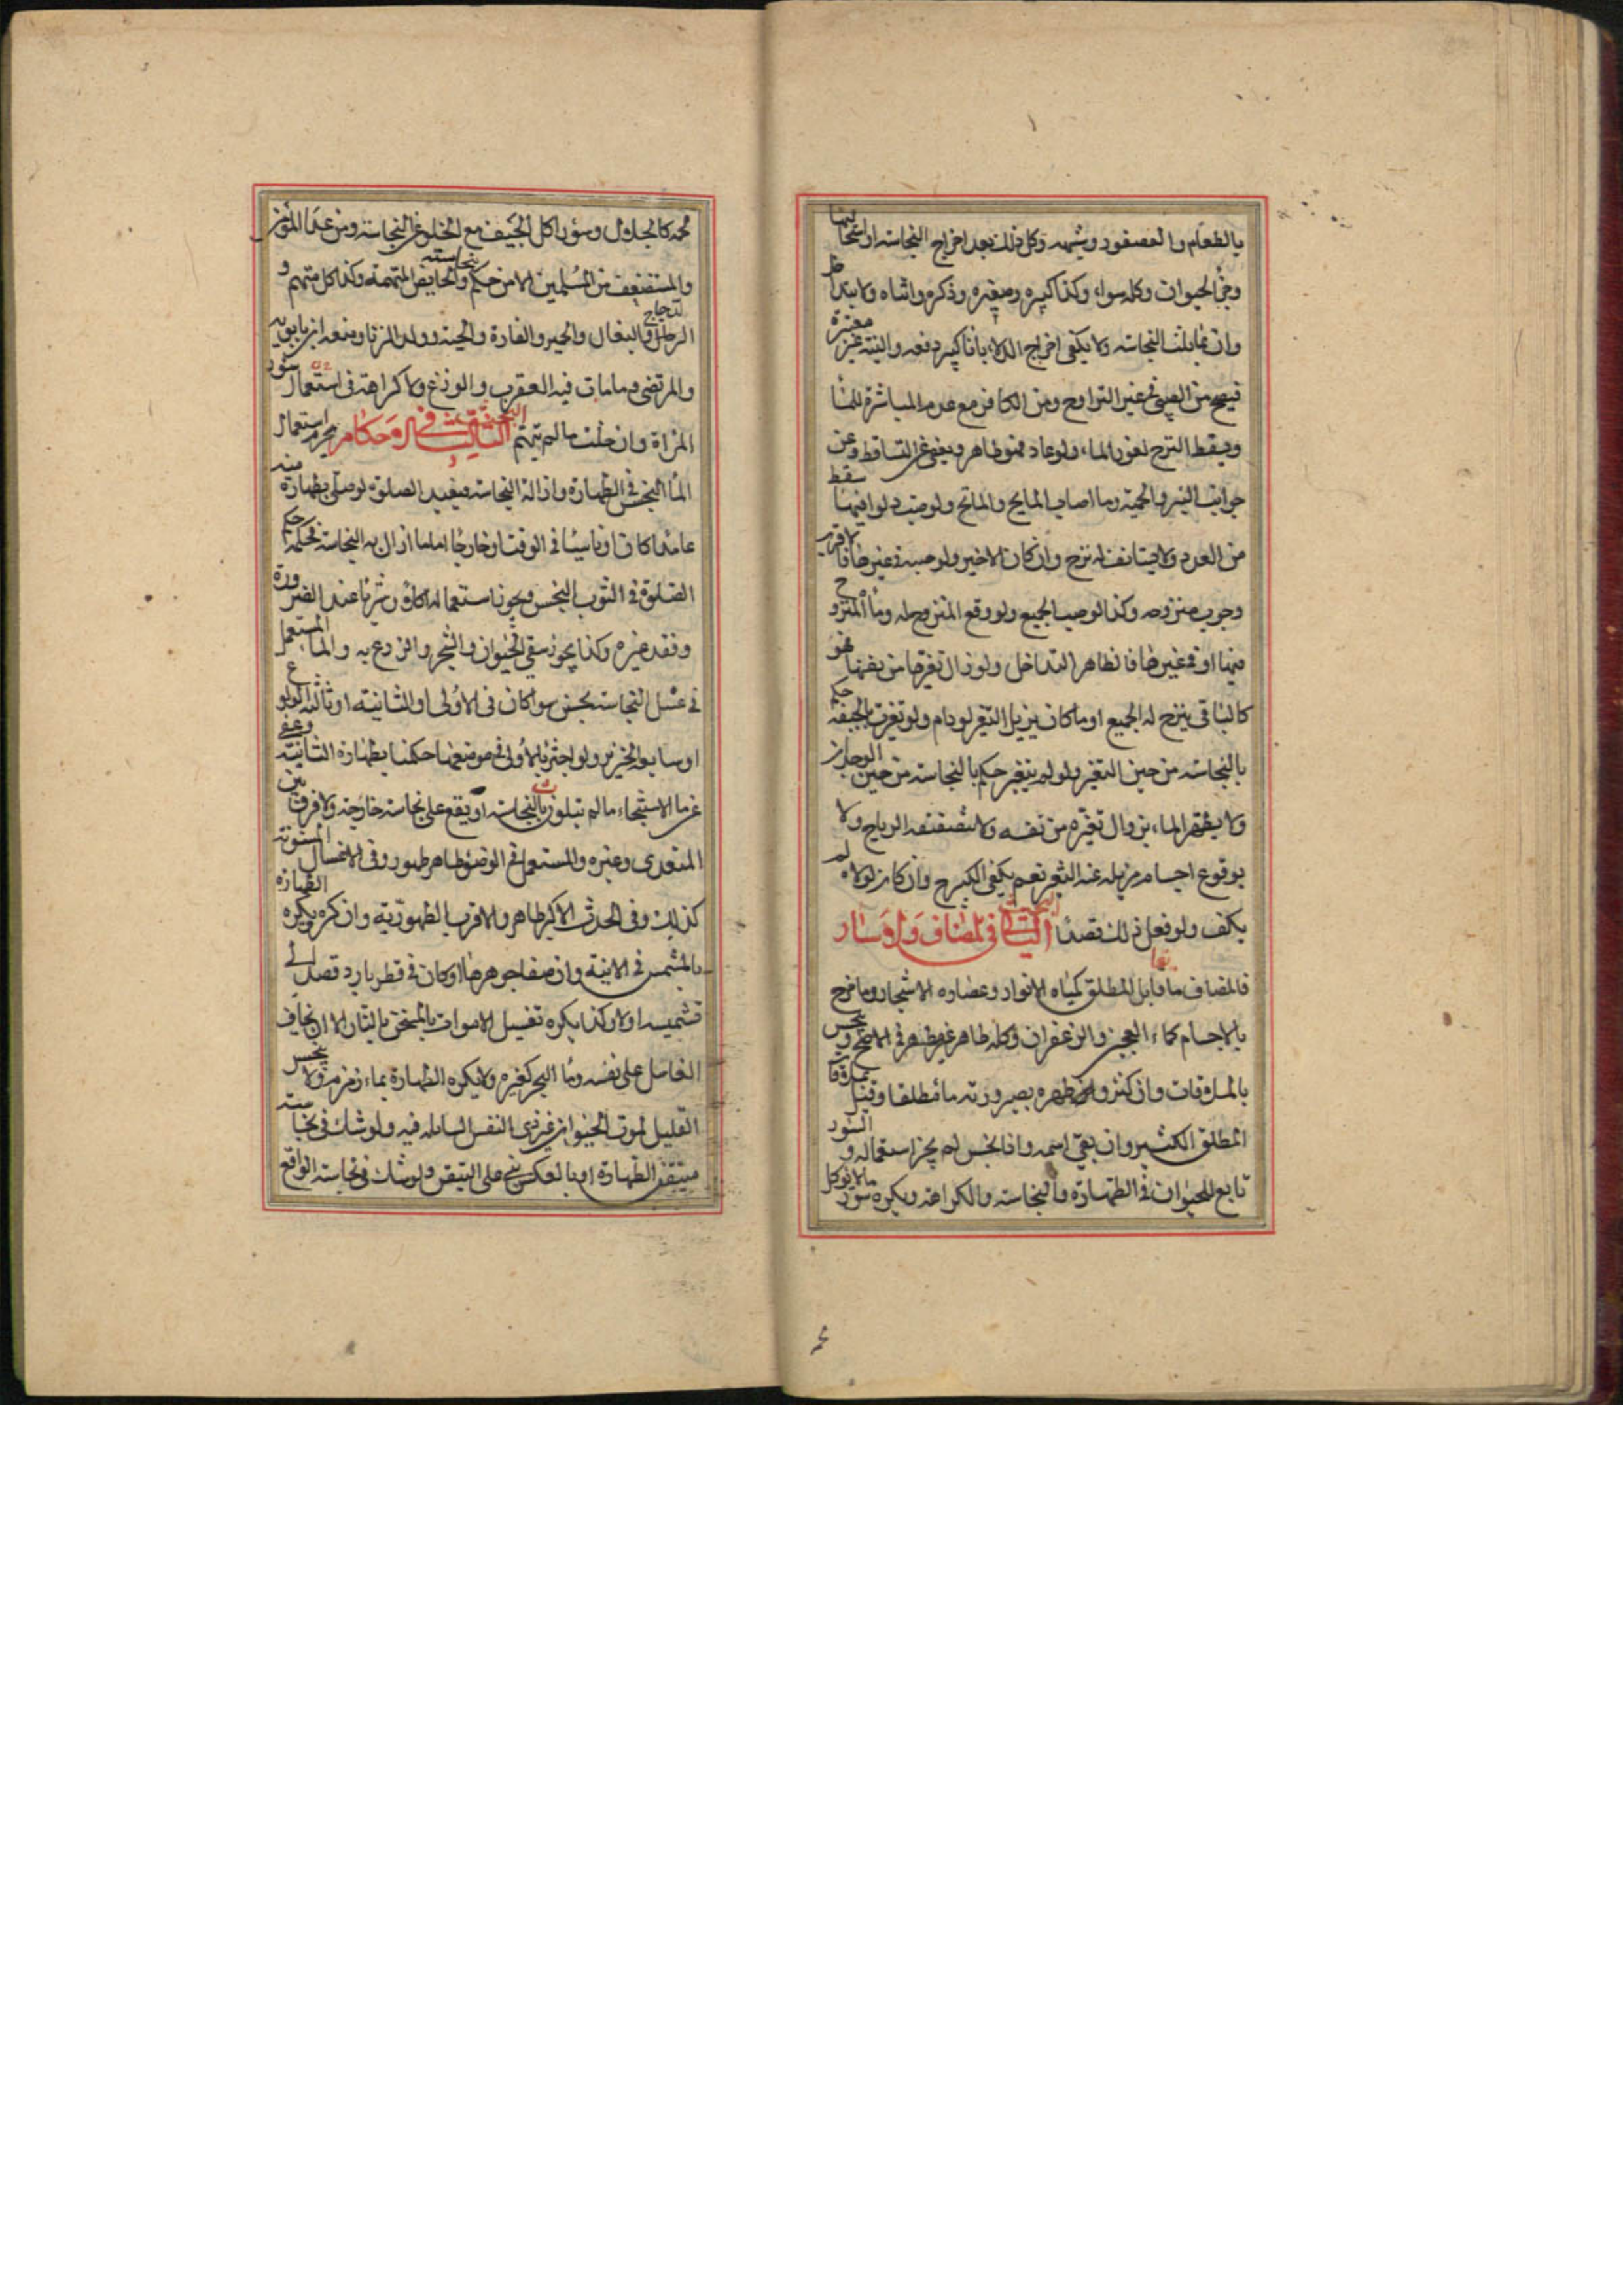 بالطعام والعصفور وشبهه وكل ذلك بعد اخراج النجاسة او استحالتها
وجزء الحيوان وكله سواء وكذا كبيره وصغيره وذكره وانثاه ولا يتداخل
وان تماثلت النجاسة ولا يكفي اخراج الدلاء باناء كبير دفعه والنية غير معتبرة
فيصح من الصبي في غير التراوح ومن الكافر مع عدم المباشرة للماء
ويسقط النزح بغور الماء ولو عاد فهو طاهر ويعفى عن التساقط وعن
جوانب البئر والحمية وما اصاب المايح والماتح ولو صب دلو فيها سقط
من العدد ولا يستانف له نزح وان كان الاخير ولو صبه في غيرها فالاقرب
وجوب منزوحه وكذا لو صب الجميع ولو وقع المنزوح له وماء المنزوح
فيها او في غيرها فالظاهر التداخل ولو زال تغيرها من نفسها فهو
كالباقي ينزح له الجميع او ما كان يزيل التغير لو دام ولو تغيرت بالجيفة حكم
بالنجاسة من حين التغير ولو لم يتغير حكم بالنجاسة من حين الوجدان
ولا يطهر الماء بزوال تغيره من نفسه ولا بتصفيقه الرياح ولا
بوقوع اجسام مزيلة عنه التغير نعم يكفي الكر وان كان لولاه لم
يكف ولو فعل ذلك قصدا البحث الثاني في المضاف والاسآر
فالمضاف ما قابل المطلق كمياه الانوار وعصاره الاشجار وما مزج
بالاجسام كماء العجين والزعفران وكله طاهر غير مطهر في الاصح وينجس
بالملاقات وان كثر وطهره بصيرورته ماء مطلقا وقيل بملاقاة
المطلق الكثير وان بقي اسمه واذا نجس لم يجز استعماله والسؤر
تابع للحيوان في الطهارة والنجاسة والكراهة ويكره سؤر ما لا يؤكل
لحمه كالجلال وسؤر آكل الجيف مع الخلو عن النجاسة ومن عدا المؤمن
والمستضعف من المسلمين الا من حكم بنجاسته والحايض المتهمة وكذا كل متهم و
الدجاج والبغال والحمير والفارة والحية وولد الزنا ومنعه ابن بابويه
والمرتضى وما مات فيه العقرب والوزغ ولا كراهة في استعمال سؤر
المراة وان خلت ما لم تتهم البحث الثالث في الاحكام يحرم استعمال
الماء النجس في الطهارة وازالة النجاسة فيعيد الصلوة لو صلى بطهارة منه
عامدا كان او ناسيا في الوقت او خارجا اما ما ازال به النجاسة فحكمه حكم
الصلوة في الثوب النجس ويجوز استعماله اكلا وشربا عند الضرورة
وفقد غيره وكذا يجوز سقي الحيوان والشجر والزرع به والماء المستعمل
في غسل النجاسة نجس سواء كان في الاولى او الثانية او ثالثة الولوغ
او سابع الخنزير ولو اجتزى بالاولى في موضعها حكمنا بطهارة الثانية وعفي
عن ماء الاستنجاء ما لم يتلون بالنجاسة او يقع على نجاسة خارجة ولا فرق بين
المتعدى وغيره والمستعمل في الوضوء طاهر طهور وفي الاغسال المسنونة
كذلك وفي الحدث الاكبر طاهر والاقرب الطهورية وان كره ويكره الطهارة
بالمشمس في الانية وان صفا جوهرها او كان في قطر بارد قصد الى
تشميسه اولا وكذا يكره تغسيل الاموات بالمسخن بالنار الا ان يخاف
الغاسل على نفسه وماء البحر كغيره ولا يكره الطهارة بماء زمزم ولا ينجس
القليل لموت الحيوان غير ذي النفس السايله فيه ولو شك في نجاسة
متيقن الطهارة او بالعكس بنى على التيقن ولو شك في نجاسة الواقع